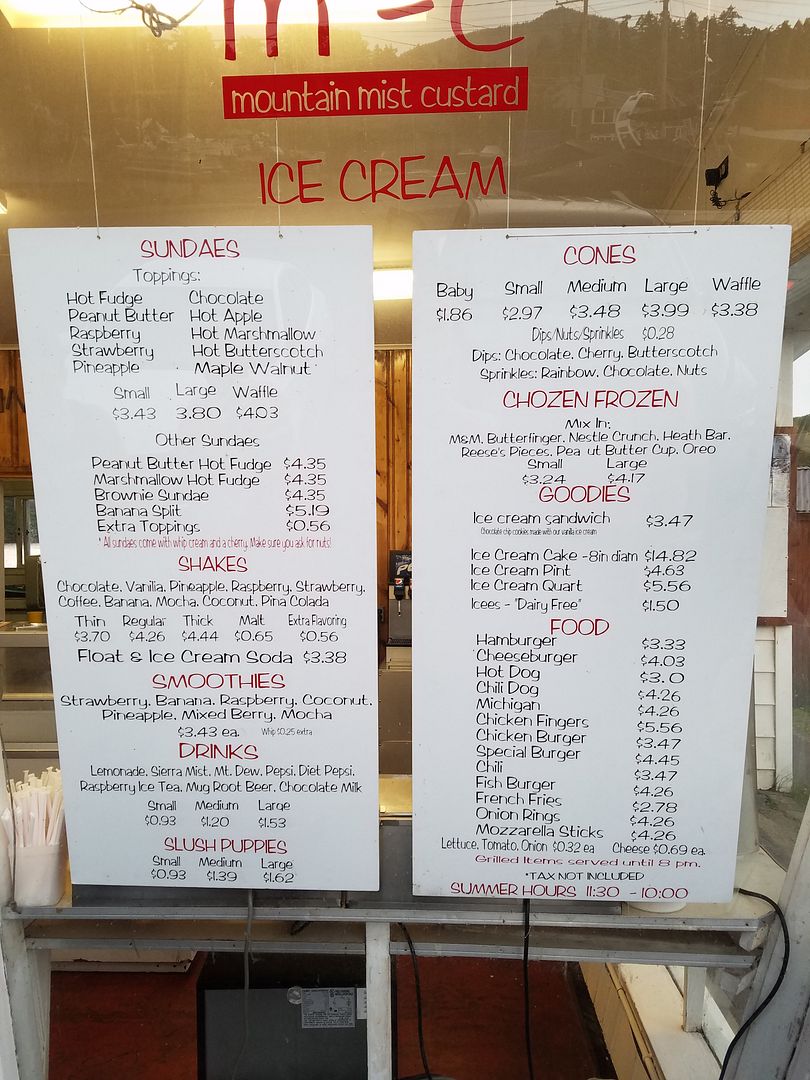 m-c
mountain mist custard
ICE CREAM
SUNDAES
Toppings:
Hot Fudge Chocolate
Peanut Butter Hot Apple
Raspberry Hot Marshmallow
Strawberry Hot Butterscotch
Pineapple Maple Walnut
Small Large Waffle
$3.43 3.80 $4.03
Other Sundaes
Peanut Butter Hot Fudge $4.35
Marshmallow Hot Fudge $4.35
Brownie Sundae $4.35
Banana Split $5.19
Extra Toppings $0.56
* All sundaes come with whip cream and a cherry. Make sure you ask for nuts!
SHAKES
Chocolate, Vanilia, Pineapple, Raspberry, Strawberry,
Coffee, Banana, Mocha, Coconut, Pina Colada
Thin Regular Thick Malt Extra Flavoring
$3.70 $4.26 $4.44 $0.65 $0.56
Float & Ice Cream Soda $3.38
SMOOTHIES
Strawberry, Banana, Raspberry, Coconut,
Pineapple, Mixed Berry, Mocha
$3.43 ea. Whip $0.25 extra
DRINKS
Lemonade, Sierra Mist, Mt. Dew, Pepsi, Diet Pepsi,
Raspberry Ice Tea, Mug Root Beer, Chocolate Milk
Small Medium Large
$0.93 $1.20 $1.53
SLUSH PUPPIES
Small Medium Large
$0.93 $1.39 $1.62
CONES
Baby Small Medium Large Waffle
$1.86 $2.97 $3.48 $3.99 $3.38
Dips/Nuts/Sprinkles $0.28
Dips: Chocolate, Cherry, Butterscotch
Sprinkles: Rainbow, Chocolate, Nuts
CHOZEN FROZEN
Mix In:
M&M, Butterfinger, Nestle Crunch, Heath Bar,
Reese's Pieces, Pea ut Butter Cup, Oreo
Small Large
$3.24 $4.17
GOODIES
Ice cream sandwich $3.47
Chocolate chip cookies made with our vanilla ice cream
Ice Cream Cake -8in diam $14.82
Ice Cream Pint $4.63
Ice Cream Quart $5.56
Icees - "Dairy Free" $1.50
FOOD
Hamburger $3.33
Cheeseburger $4.03
Hot Dog $3. 0
Chili Dog $4.26
Michigan $4.26
Chicken Fingers $5.56
Chicken Burger $3.47
Special Burger $4.45
Chili $3.47
Fish Burger $4.26
French Fries $2.78
Onion Rings $4.26
Mozzarella Sticks $4.26
Lettuce, Tomato, Onion $0.32 ea Cheese $0.69 ea.
Grilled Items served until 8 pm.
*TAX NOT INCLUDED
SUMMER HOURS 11:30 - 10:00